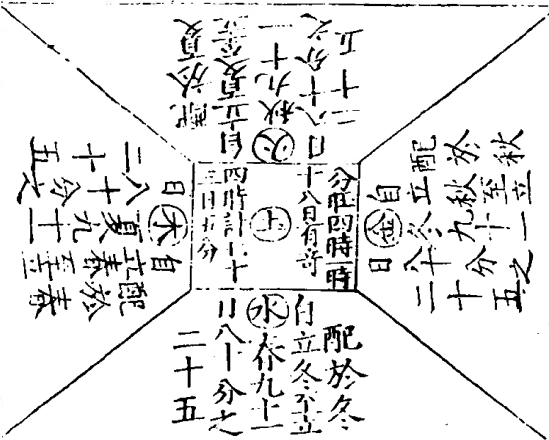 配於夏
自立夏至立
火秋九十一
日八十分之
二十五
配於秋
自立秋至立
金冬九十一
日八十分之
二十五
分旺四時一時
十八日有奇
土
四時計七十
三日五分
配於春
自立春至立
木夏九十一
日八十分之
二十五
配於冬
自立冬至立
水春九十一
日八十分之
二十五